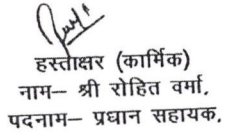 हस्ताक्षर (कार्मिक)
नाम– श्री रोहित वर्मा.
पदनाम– प्रधान सहायक.